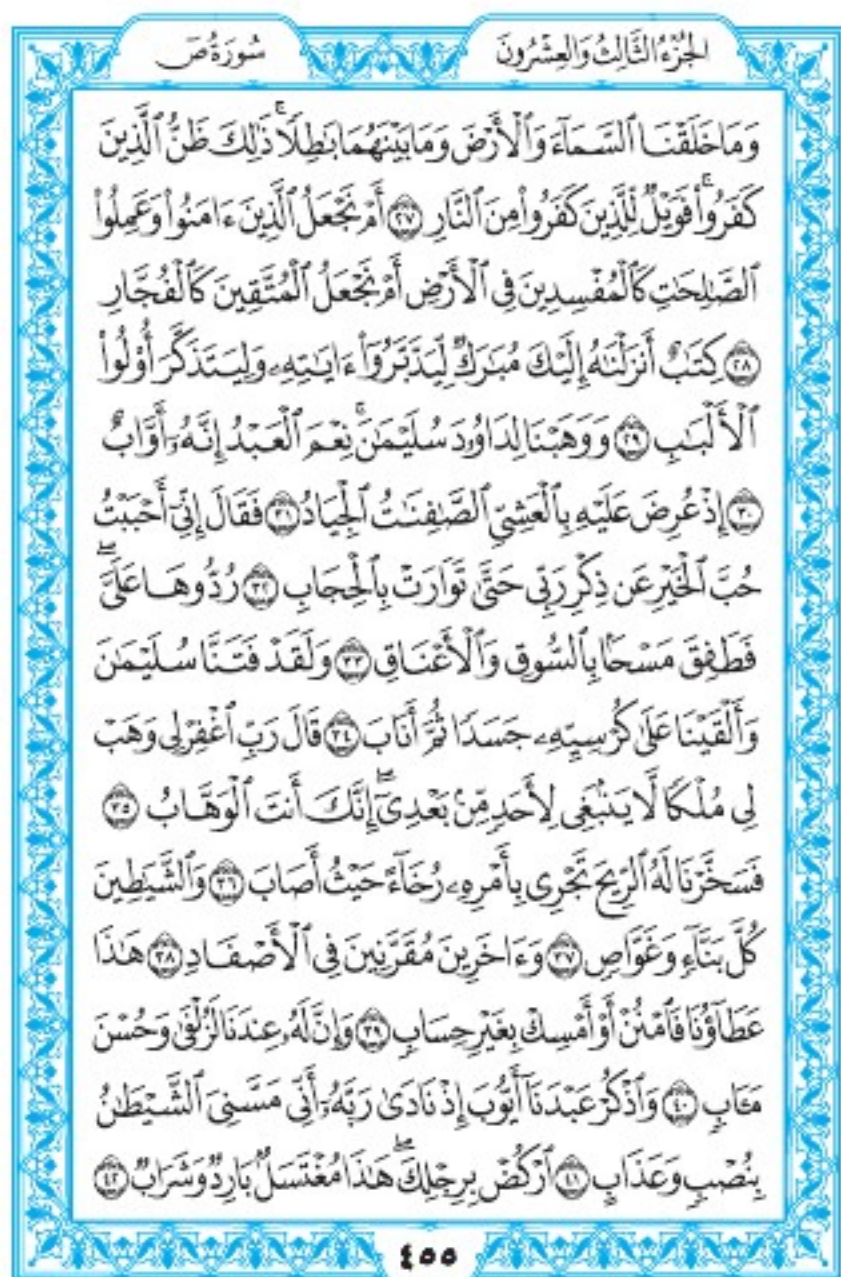 الجُزْءُ الثَّالِثُ وَالعِشْرُونَ
سُورَةُ صٓ
وَمَا خَلَقْنَا ٱلسَّمَآءَ وَٱلْأَرْضَ وَمَا بَيْنَهُمَا بَٰطِلًاۚ ذَٰلِكَ ظَنُّ ٱلَّذِينَ
كَفَرُواْۚ فَوَيْلٌ لِّلَّذِينَ كَفَرُواْ مِنَ ٱلنَّارِ ٢٧ أَمْ نَجْعَلُ ٱلَّذِينَ ءَامَنُواْ وَعَمِلُواْ
ٱلصَّٰلِحَٰتِ كَٱلْمُفْسِدِينَ فِى ٱلْأَرْضِ أَمْ نَجْعَلُ ٱلْمُتَّقِينَ كَٱلْفُجَّارِ
٢٨ كِتَٰبٌ أَنزَلْنَٰهُ إِلَيْكَ مُبَٰرَكٌ لِّيَدَّبَّرُوٓاْ ءَايَٰتِهِۦ وَلِيَتَذَكَّرَ أُوْلُواْ
ٱلْأَلْبَٰبِ ٢٩ وَوَهَبْنَا لِدَاوُۥدَ سُلَيْمَٰنَۚ نِعْمَ ٱلْعَبْدُ إِنَّهُۥٓ أَوَّابٌ
٣٠ إِذْ عُرِضَ عَلَيْهِ بِٱلْعَشِىِّ ٱلصَّٰفِنَٰتُ ٱلْجِيَادُ ٣١ فَقَالَ إِنِّىٓ أَحْبَبْتُ
حُبَّ ٱلْخَيْرِ عَن ذِكْرِ رَبِّى حَتَّىٰ تَوَارَتْ بِٱلْحِجَابِ ٣٢ رُدُّوهَا عَلَىَّۖ
فَطَفِقَ مَسْحًۢا بِٱلسُّوقِ وَٱلْأَعْنَاقِ ٣٣ وَلَقَدْ فَتَنَّا سُلَيْمَٰنَ
وَأَلْقَيْنَا عَلَىٰ كُرْسِيِّهِۦ جَسَدًا ثُمَّ أَنَابَ ٣٤ قَالَ رَبِّ ٱغْفِرْ لِى وَهَبْ
لِى مُلْكًا لَّا يَنۢبَغِى لِأَحَدٍ مِّنۢ بَعْدِىٓۖ إِنَّكَ أَنتَ ٱلْوَهَّابُ ٣٥
فَسَخَّرْنَا لَهُ ٱلرِّيحَ تَجْرِى بِأَمْرِهِۦ رُخَآءً حَيْثُ أَصَابَ ٣٦ وَٱلشَّيَٰطِينَ
كُلَّ بَنَّآءٍ وَغَوَّاصٍ ٣٧ وَءَاخَرِينَ مُقَرَّنِينَ فِى ٱلْأَصْفَادِ ٣٨ هَٰذَا
عَطَآؤُنَا فَٱمْنُنْ أَوْ أَمْسِكْ بِغَيْرِ حِسَابٍ ٣٩ وَإِنَّ لَهُۥ عِندَنَا لَزُلْفَىٰ وَحُسْنَ
مَـَٔابٍ ٤٠ وَٱذْكُرْ عَبْدَنَآ أَيُّوبَ إِذْ نَادَىٰ رَبَّهُۥٓ أَنِّى مَسَّنِىَ ٱلشَّيْطَٰنُ
بِنُصْبٍ وَعَذَابٍ ٤١ ٱرْكُضْ بِرِجْلِكَۖ هَٰذَا مُغْتَسَلٌۢ بَارِدٌ وَشَرَابٌ ٤٢
٤٥٥